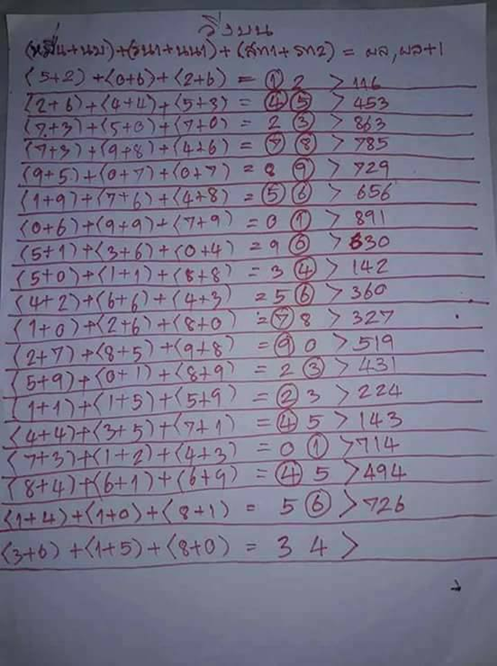 วิ่งบน
(หมื่น+นบ)+(รน1+นน1)+(สท1+รท2) = ผล,ผล+1
(5+2)+(0+6)+(2+6) = 1 2 > 116
(2+6)+(4+4)+(5+8) = 4 5 > 453
(7+3)+(5+0)+(7+0) = 2 3 > 863
(7+3)+(9+8)+(4+6) = 7 8 > 785
(9+5)+(0+7)+(0+7) = 8 9 > 729
(1+9)+(7+6)+(4+8) = 5 6 > 656
(0+6)+(9+9)+(7+9) = 0 1 > 891
(5+1)+(3+6)+(0+4) = 9 0 > 630
(5+0)+(1+1)+(8+8) = 3 4 > 142
(4+2)+(6+6)+(4+3) = 5 6 > 360
(1+0)+(2+6)+(8+0) = 7 8 > 327
(2+7)+(8+5)+(9+8) = 9 0 > 519
(5+9)+(0+1)+(8+9) = 2 3 > 431
(1+1)+(1+5)+(5+9) = 2 3 > 224
(4+4)+(3+5)+(7+1) = 4 5 > 143
(7+3)+(1+2)+(4+3) = 0 1 > 714
(8+4)+(6+1)+(6+9) = 4 5 > 494
(1+4)+(1+0)+(8+1) = 5 6 > 726
(3+6)+(1+5)+(8+0) = 3 4 >